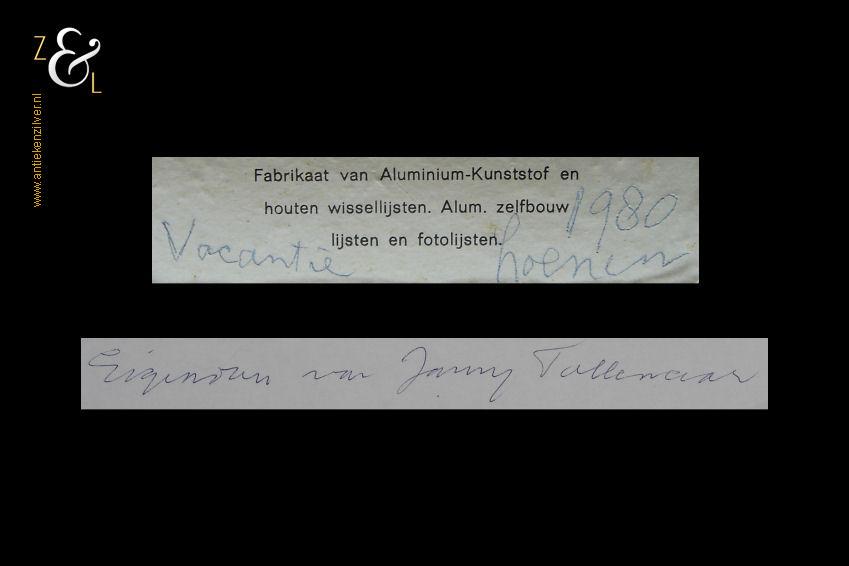 Z & L
www.antiekenzilver.nl
Fabrikaat van Aluminium-Kunststof en
houten wissellijsten. Alum. zelfbouw 1980
lijsten en fotolijsten.
Vacantie Loenen
Eigendom van Janny Tollenaar